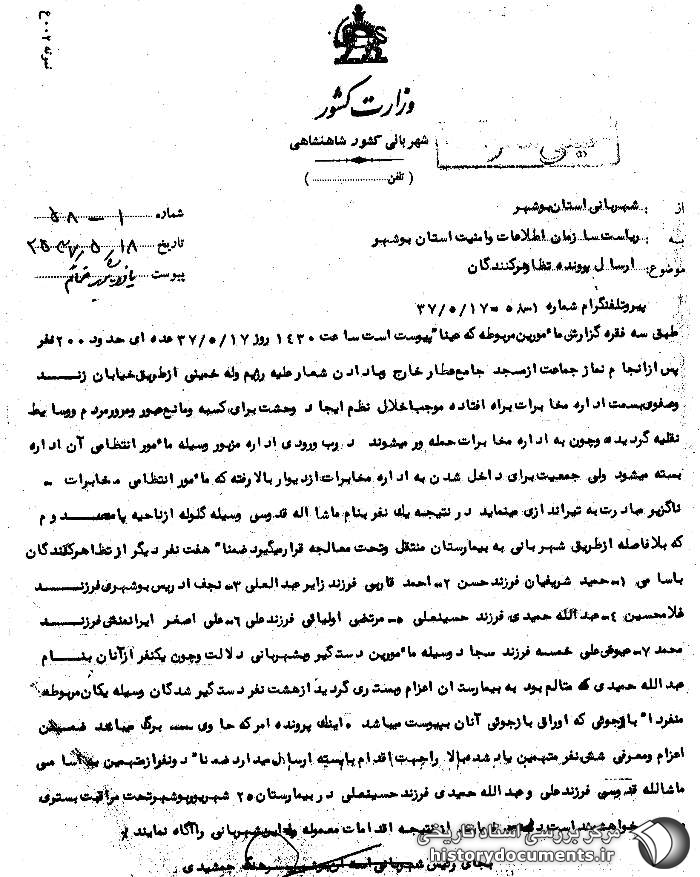 نمونه ۲-۰۰ع
وزارت کشور
شهربانی کشور شاهنشاهی
( تلفن )
شماره ۱ـ ۵۸
تاریخ ۱۸/ ۵/ ۲۵۳۷
پیوست
از : شهربانی استان بوشهر
به : ریاست سازمان اطلاعات وامنیت استان بوشهر
موضوع: ارسال پرونده تظاهرکنندگان
پیروتلفنگرام شماره ۱ـ۵۸ـ۳۷/۵/۱۷
طبق سه فقره گزارش مأمورین مربوطه که عینا" پیوست است ساعت ۱۴۳۰ روز ۳۷/۵/۱۷ عده ای حدود ۲۰۰نفر
پس ازانجام نماز جماعت ازمسجد جامع عطار خارج وبادادن شعار علیه رژیم وله خمینی ازطریق خیابان زنـد
وصفوی بسمت اداره مخابرات براه افتاده موجب اخلال نظم ایجاد وحشت برای کسبه ومانع عبور ومرور مردم ووسایط
نقلیه گردیده وچون به اداره مخابرات حمله ور میشوند درب ورودی اداره مزبور وسیله مأمور انتظامی آن اداره
بسته میشود ولی جمعیت برای داخل شدن به اداره مخابرات ازدیوار بالا رفته که مأمور انتظامی مخابرات ـ
ناگزیر مبادرت به تیراندازی مینماید در نتیجه یک نفر بنام ماشا اله قدوسی وسیله گلوله ازناحیه پا مصـدوم
که بلافاصله ازطریق شهربانی به بیمارستان منتقل وتحت معالجه قرارمیگیرد ضمنا" هفت نفر دیگر از تظاهرکنندگان
باسامی ۱ـ حمید شریفیان فرزند حسن ۲ـ احمد قاریی فرزند زایر عبدالعلی ۳ـ نجف ادریس بوشهری فرزنـد
غلامحسین ۴ـ عبدالله حمیدی فرزند حسینعلی ۵ـ مرتضی اولیائی فرزندعلی ۶ـ علی اصغر ایرانمنش فرزنـد
محمد ۷ـ عیوض علی خمسه فرزند سجاد وسیله مأمورین دستگیر وبشهربانی دلالت وچون یکنفر ازآنان بنـام
عبدالله حمیدی که متالم بود به بیمارستان اعزام وبستری گردید ازهشت نفر دستگیر شدگان وسیله یکان مربوطه
منفردا" بازجوئی که اوراق بازجوئی آنان بپیوست میباشد . اینک پرونده امر که حاوی برگ میباشد ضمن
اعزام ومعرفی شش نفر متهمین یاد شده بالا راجهت اقدام بایسته ارسال میدارد ضمنا" دونفر ازمتهمین به اسامی
ماشالله قدوسی فرزندعلی وعبدالله حمیدی فرزند حسینعلی در بیمارستان ۲۵ شهریور بوشهر تحت مراقبت بستری
خواهشمند است از نتیجه اقدامات معموله این شهربانی راآگاه نمایند .
بجای رئیس شهربانی استان بوشهر سرهنگ جمشیدی
مرکز بررسی اسناد تاریخی
historydocuments.ir